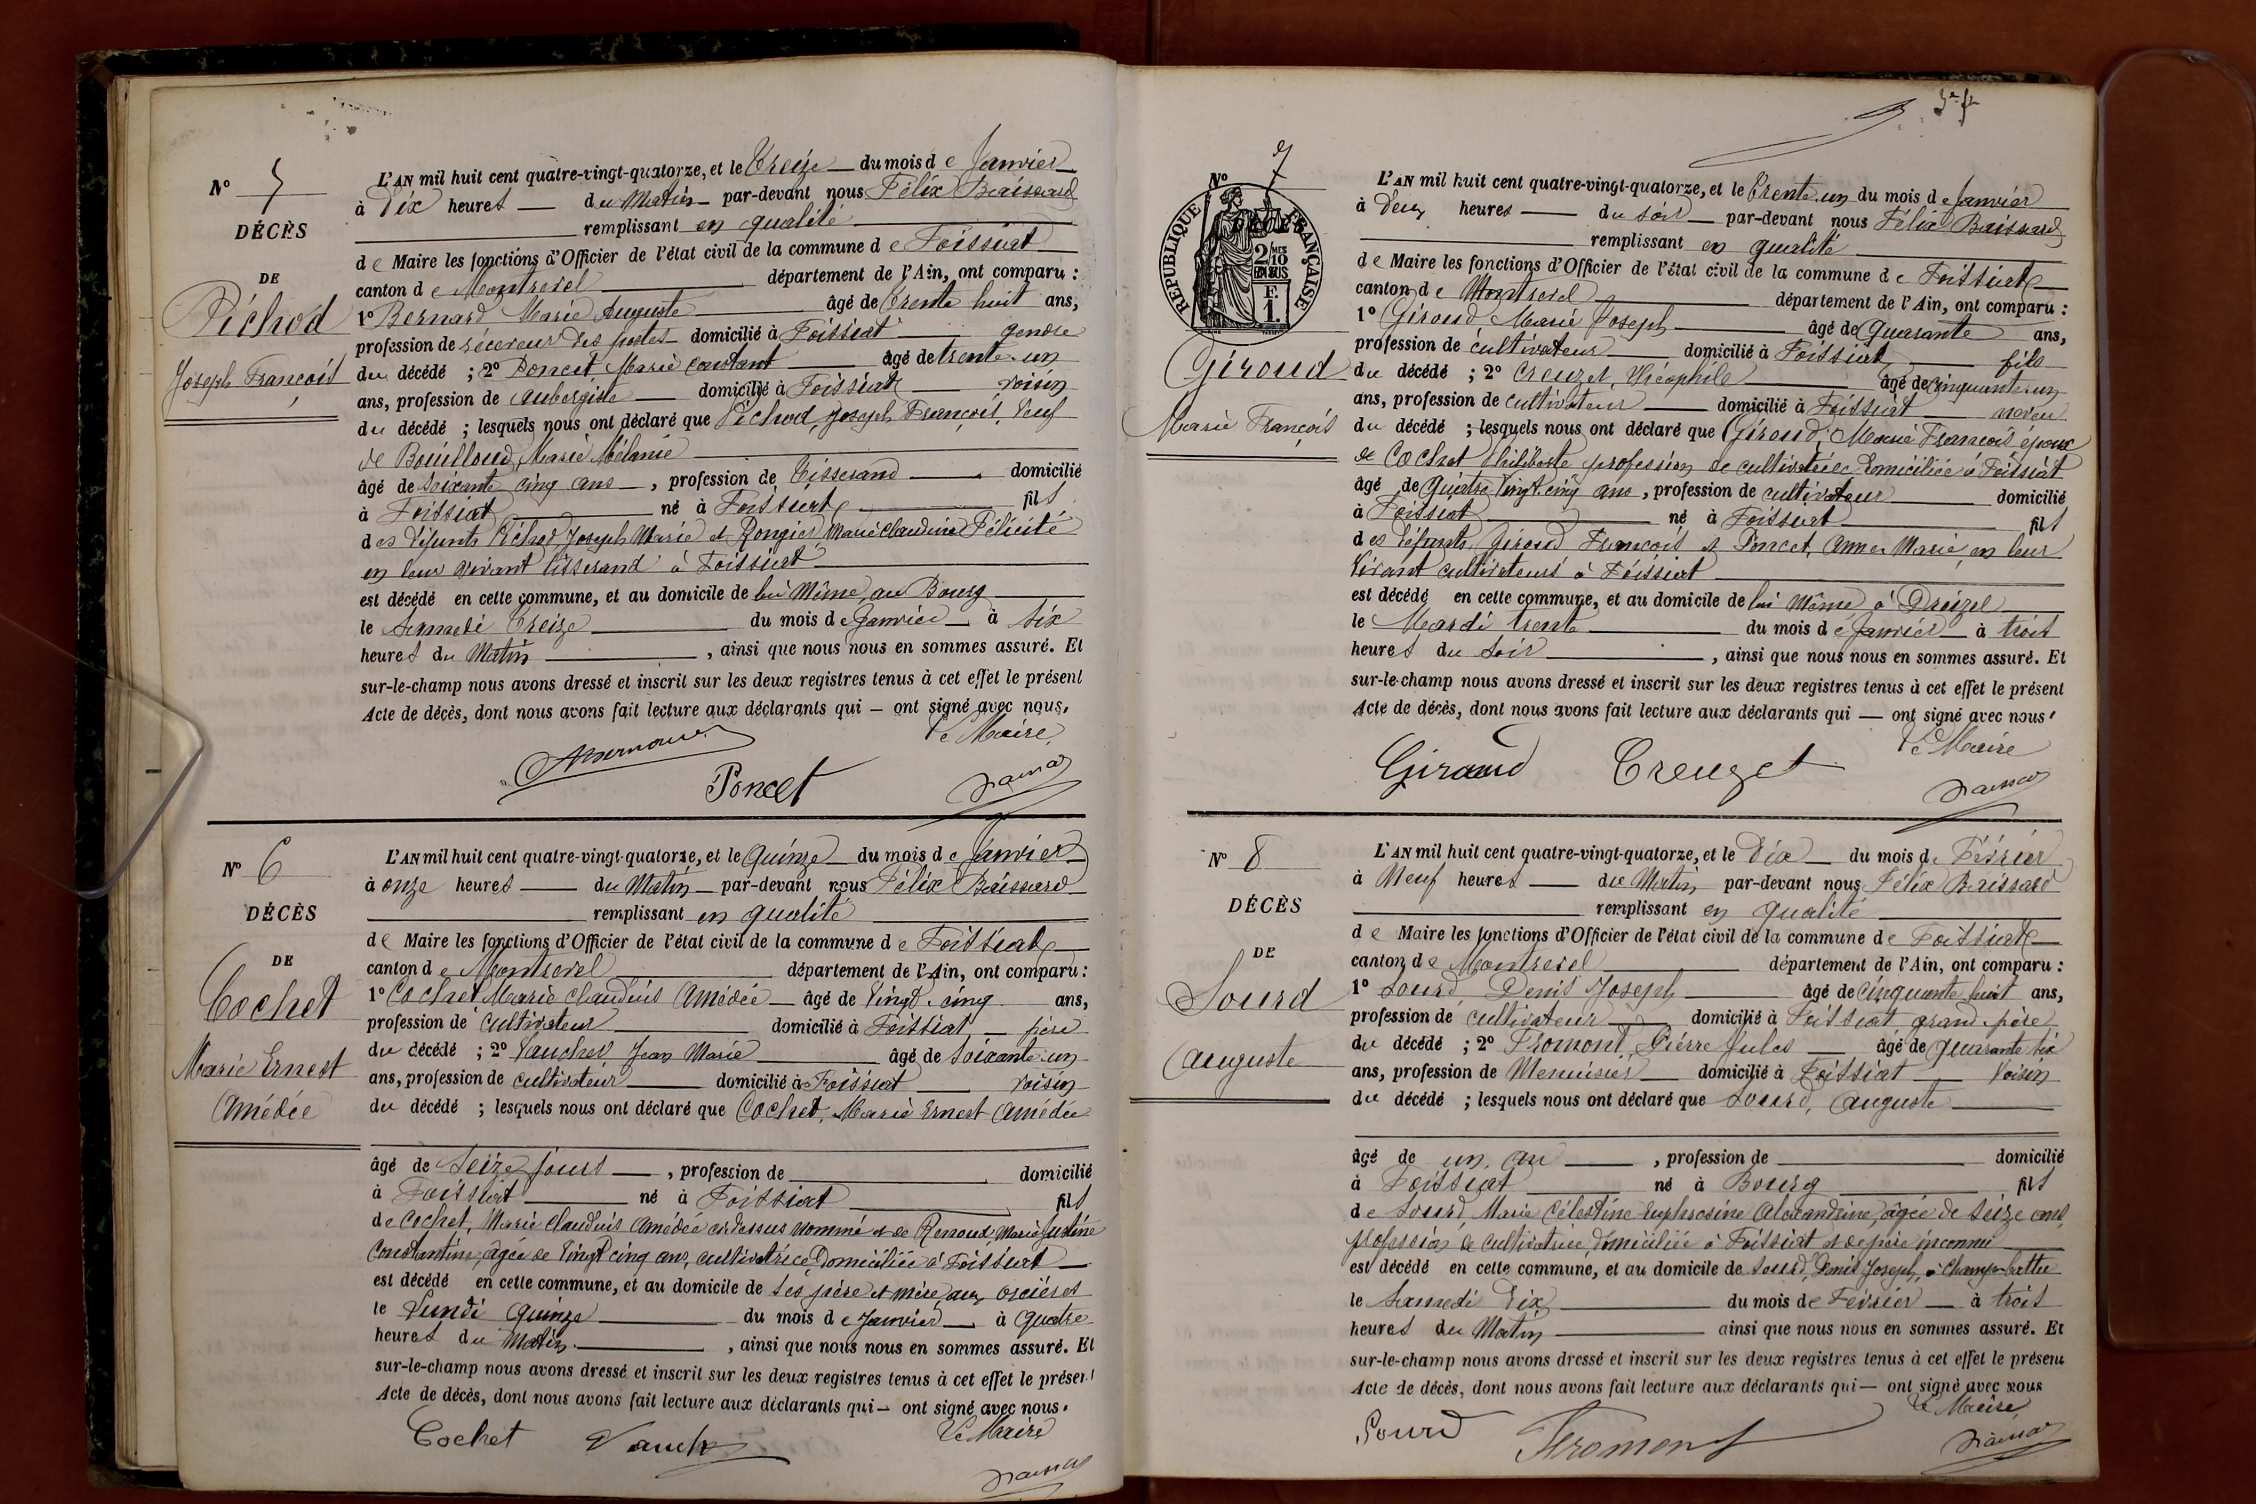 Nº 5
DÉCÈS
DE
Péchod
Joseph François
L'AN mil huit cent quatre-vingt-quatorze, et le Treize du mois de Janvier
à Dix heures du Matin par-devant nous Félix Baissard
remplissant en qualité
de Maire les fonctions d'Officier de l'état civil de la commune de Foissiat
canton de Montrevel département de l'Ain, ont comparu :
1º Bernard Marie Auguste âgé de trente huit ans,
profession de receveur des postes domicilié à Foissiat gendre
du décédé ; 2º Poncet Marie Constant âgé de trente-un
ans, profession de Aubergiste domicilié à Foissiat voisin
du décédé ; lesquels nous ont déclaré que Péchod, Joseph François, Veuf
de Bouilloud, Marie Mélanie
âgé de soixante cinq ans, profession de Tisserand domicilié
à Foissiat né à Foissiat fils
des défunts Péchod Joseph Marie et Rongier Marie Claudine Félicité
en leur vivant tisserand à Foissiat
est décédé en cette commune, et au domicile de lui Même, au Bourg
le Samedi Treize du mois de Janvier à six
heures du Matin, ainsi que nous nous en sommes assuré. Et
sur-le-champ nous avons dressé et inscrit sur les deux registres tenus à cet effet le présent
Acte de décès, dont nous avons fait lecture aux déclarants qui — ont signé avec nous.
Le Maire
Poncet
Nº 6
DÉCÈS
DE
Cochet
Marie Ernest
Amédée
L'AN mil huit cent quatre-vingt-quatorze, et le Quinze du mois de Janvier
à onze heures du Matin par-devant nous Félix Baissard
remplissant en qualité
de Maire les fonctions d'Officier de l'état civil de la commune de Foissiat
canton de Montrevel département de l'Ain, ont comparu :
1º Cochet Marie Claudius Amédée âgé de Vingt-cinq ans,
profession de cultivateur domicilié à Foissiat père
du décédé ; 2º Vaucher Jean Marie âgé de soixante-un
ans, profession de cultivateur domicilié à Foissiat voisin
du décédé ; lesquels nous ont déclaré que Cochet, Marie Ernest Amédée
âgé de Seize jours, profession de domicilié
à Foissiat né à Foissiat fils
de Cochet, Marie Claudius Amédée ci-dessus nommé et de Renoud, Marie Justine
Constantine, âgée de Vingt cinq ans, cultivatrice, domiciliée à Foissiat
est décédé en cette commune, et au domicile de ses père et mère, aux
le Lundi quinze du mois de Janvier à quatre
heures du Matin, ainsi que nous nous en sommes assuré. Et
sur-le-champ nous avons dressé et inscrit sur les deux registres tenus à cet effet le présent
Acte de décès, dont nous avons fait lecture aux déclarants qui — ont signé avec nous.
Le Maire
Cochet
Nº 7
RÉPUBLIQUE FRANÇAISE
2/10
EN SUS
F.
1.
Giroud
Marie François
L'AN mil huit cent quatre-vingt-quatorze, et le Trente-un du mois de Janvier
à Deux heures du soir par-devant nous Félix Baissard
remplissant en qualité
de Maire les fonctions d'Officier de l'état civil de la commune de Foissiat
canton de Montrevel département de l'Ain, ont comparu :
1º Giroud Marie Joseph âgé de quarante ans,
profession de cultivateur domicilié à Foissiat fils
du décédé ; 2º Creuzet, Théophile âgé de cinquante-un
ans, profession de cultivateur domicilié à Foissiat neveu
du décédé ; lesquels nous ont déclaré que Giroud, Marie François époux
de Cochet Philiberte profession de cultivatrice domiciliée à Foissiat
âgé de Quatre Vingt-cinq ans, profession de cultivateur domicilié
à Foissiat né à Foissiat fils
des défunts Giroud François et Poncet, Anne Marie, en leur
Vivant cultivateurs à Foissiat
est décédé en cette commune, et au domicile de lui Même, à Dreizel
le Mardi trente du mois de Janvier à trois
heures du Soir, ainsi que nous nous en sommes assuré. Et
sur-le-champ nous avons dressé et inscrit sur les deux registres tenus à cet effet le présent
Acte de décès, dont nous avons fait lecture aux déclarants qui — ont signé avec nous.
Le Maire
Giroud Creuzet
Nº 8
DÉCÈS
DE
Sourd
Auguste
L'AN mil huit cent quatre-vingt-quatorze, et le Dix du mois de Février
à Neuf heures du Matin par-devant nous Félix Baissard
remplissant en qualité
de Maire les fonctions d'Officier de l'état civil de la commune de Foissiat
canton de Montrevel département de l'Ain, ont comparu :
1º Sourd, Denis Joseph âgé de cinquante huit ans,
profession de cultivateur domicilié à Foissiat grand-père
du décédé ; 2º Fromont, Pierre Jules âgé de quarante six
ans, profession de Menuisier domicilié à Foissiat Voisin
du décédé ; lesquels nous ont déclaré que Sourd, Auguste
âgé de un an, profession de domicilié
à Foissiat né à Bourg fils
de Sourd, Marie Célestine Euphrosine Alexandrine, âgée de seize ans,
profession de cultivatrice, domiciliée à Foissiat et de père inconnu
est décédé en cette commune, et au domicile de Sourd, Denis Joseph, à Champ-battu
le Samedi Dix du mois de Février à trois
heures du Matin ainsi que nous nous en sommes assuré. Et
sur-le-champ nous avons dressé et inscrit sur les deux registres tenus à cet effet le présent
Acte de décès, dont nous avons fait lecture aux déclarants qui — ont signé avec nous
Le Maire
Sourd Fromont